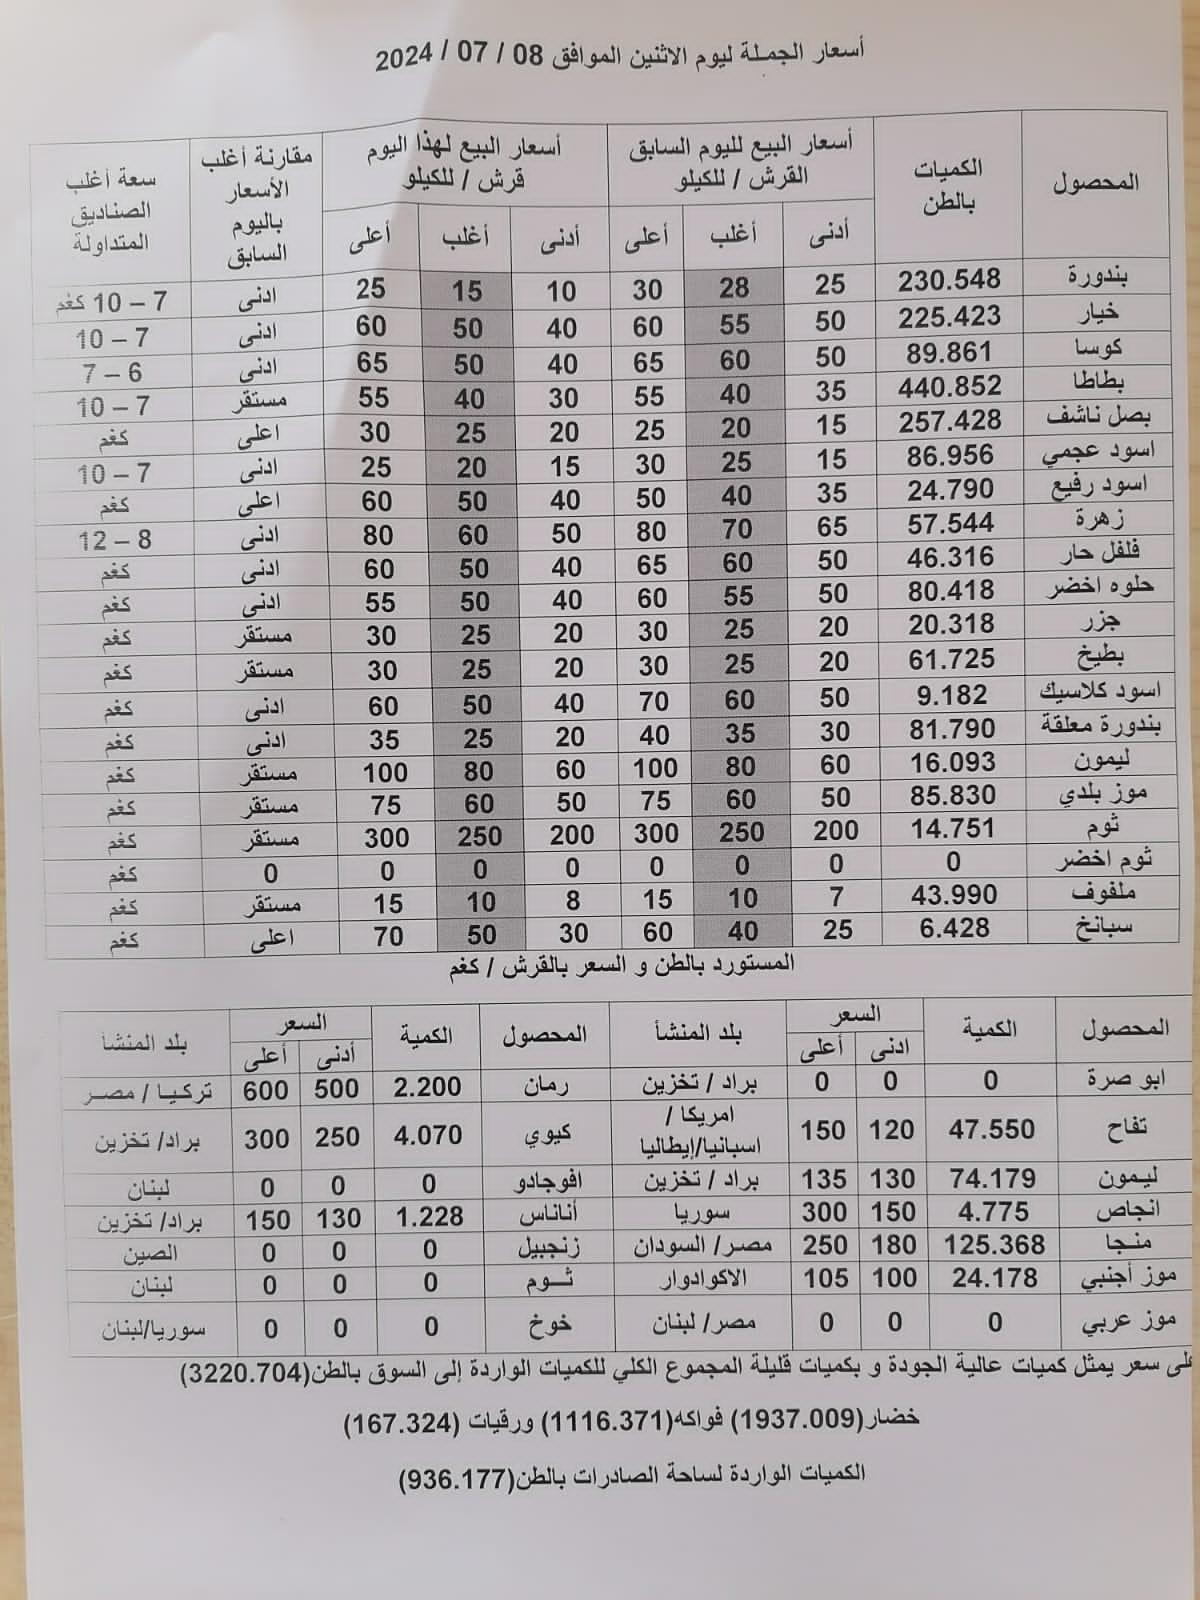 أسعار الجملة ليوم الاثنين الموافق 08 / 07 / 2024
المحصول الكميات بالطن أسعار البيع لليوم السابق القرش / للكيلو أسعار البيع لهذا اليوم قرش / للكيلو مقارنة أغلب الأسعار باليوم السابق سعة أغلب الصناديق المتداولة
أدنى أغلب أعلى أدنى أغلب أعلى
بندورة 230.548 25 28 30 10 15 25 ادنى 7 – 10 كغم
خيار 225.423 50 55 60 40 50 60 ادنى 7 – 10
كوسا 89.861 50 60 65 40 50 65 ادنى 6 – 7
بطاطا 440.852 35 40 55 30 40 55 مستقر 7 – 10
بصل ناشف 257.428 15 20 25 20 25 30 اعلى كغم
اسود عجمي 86.956 15 25 30 15 20 25 ادنى 7 – 10
اسود رفيع 24.790 35 40 50 40 50 60 اعلى كغم
زهرة 57.544 65 70 80 50 60 80 ادنى 8 – 12
فلفل حار 46.316 50 60 65 40 50 60 ادنى كغم
حلوه اخضر 80.418 50 55 60 40 50 55 ادنى كغم
جزر 20.318 20 25 30 20 25 30 مستقر كغم
بطيخ 61.725 20 25 30 20 25 30 مستقر كغم
اسود كلاسيك 9.182 50 60 70 40 50 60 ادنى كغم
بندورة معلقة 81.790 30 35 40 20 25 35 ادنى كغم
ليمون 16.093 60 80 100 60 80 100 مستقر كغم
موز بلدي 85.830 50 60 75 50 60 75 مستقر كغم
ثوم 14.751 200 250 300 200 250 300 مستقر كغم
ثوم اخضر 0 0 0 0 0 0 0 0 كغم
ملفوف 43.990 7 10 15 8 10 15 مستقر كغم
سبانخ 6.428 25 40 60 30 50 70 اعلى كغم
المستورد بالطن و السعر بالقرش / كغم
المحصول الكمية السعر بلد المنشأ المحصول الكمية السعر بلد المنشأ
ادنى أعلى أدنى أعلى
ابو صرة 0 0 0 براد / تخزين رمان 2.200 500 600 تركيا / مصر
تفاح 47.550 120 150 امريكا / اسبانيا/إيطاليا كيوي 4.070 250 300 براد/ تخزين
ليمون 74.179 130 135 براد / تخزين افوجادو 0 0 0 لبنان
انجاص 4.775 150 300 سوريا أناناس 1.228 130 150 براد/ تخزين
منجا 125.368 180 250 مصر/ السودان زنجبيل 0 0 0 الصين
موز أجنبي 24.178 100 105 الاكوادوار ثوم 0 0 0 لبنان
موز عربي 0 0 0 مصر/ لبنان خوخ 0 0 0 سوريا/لبنان
سعر يمثل كميات عالية الجودة و بكميات قليلة المجموع الكلي للكميات الواردة إلى السوق بالطن(3220.704)
خضار(1937.009) فواكه(1116.371) ورقيات (167.324)
الكميات الواردة لساحة الصادرات بالطن(936.177)